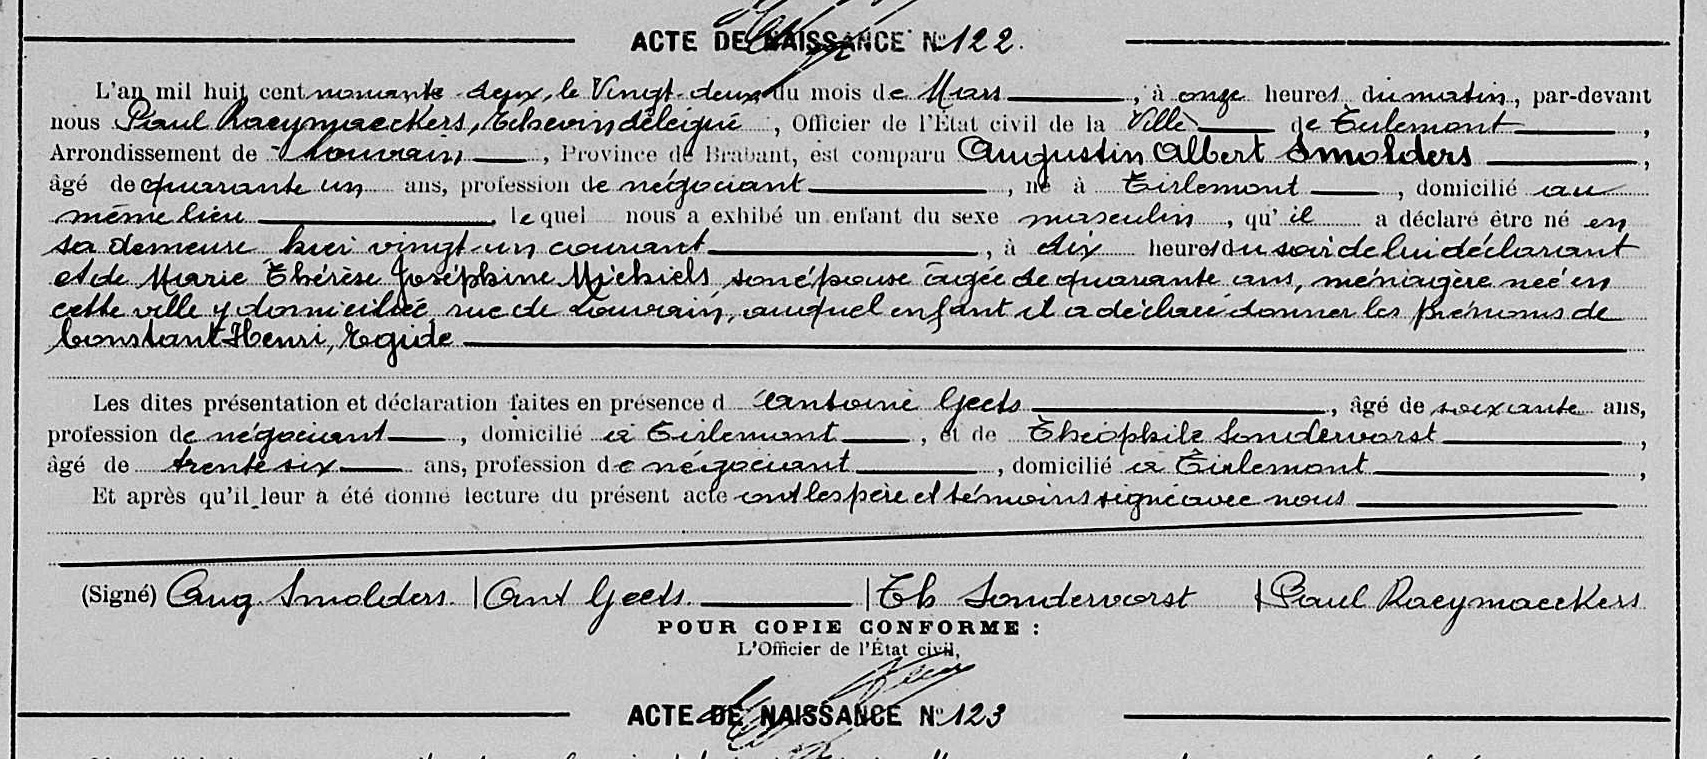 ACTE DE NAISSANCE No 122.
L'an mil huit cent nonante-deux, le Vingt-deux du mois de Mars, à onze heures du matin, par-devant
nous Paul Raeymaeckers, Echevin délégué, Officier de l'État civil de la Ville de Tirlemont,
Arrondissement de Louvain, Province de Brabant, est comparu Augustin Albert Smolders,
âgé de quarante un ans, profession de négociant, né à Tirlemont, domicilié au
même lieu, lequel nous a exhibé un enfant du sexe masculin, qu'il a déclaré être né en
sa demeure hier vingt-un courant, à dix heures du soir de lui déclarant
et de Marie Thérèse Joséphine Michiels, son épouse âgée de quarante ans, ménagère née en
cette ville y domiciliée rue de Louvain, auquel enfant il a déclaré donner les prénoms de
Constant-Henri, Egide
Les dites présentation et déclaration faites en présence d'Antoine Geets, âgé de soixante ans,
profession de négociant, domicilié à Tirlemont, et de Théophile Sondervorst,
âgé de trente six ans, profession de négociant, domicilié à Tirlemont,
Et après qu'il leur a été donné lecture du présent acte ont les père et témoins signé avec nous
(Signé) Aug. Smolders | Ant Geets. | Th Sondervorst | Paul Raeymaeckers
POUR COPIE CONFORME :
L'Officier de l'État civil,
ACTE DE NAISSANCE No 123